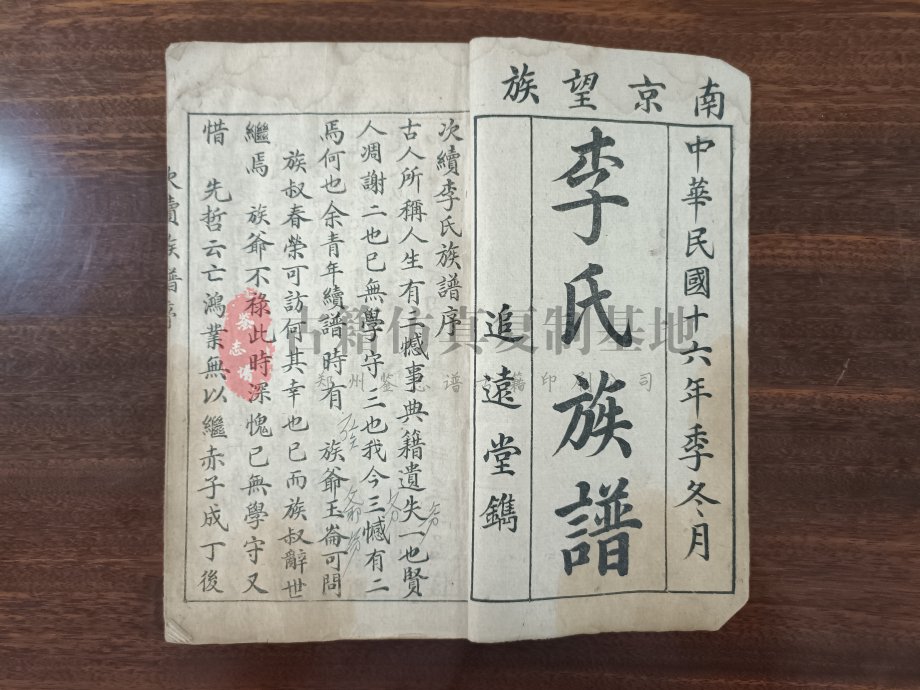 南京望族
中華民國十六年季冬月
李氏族譜
追遠堂鐫
次續李氏族譜序
古人所稱人生有三憾事典籍遺失一也賢
人凋謝二也已無學守三也我今三憾有二
焉何也余青年續譜時有　族爺玉崙可問
族叔春榮可訪何其幸也已而族叔辭世
繼焉　族爺不祿此時深愧已無學守又
惜　先哲云亡鴻業無以繼赤子成丁後
次續族譜序
古籍仿真复制基地
鉴志谱
郑州鉴志谱古籍印刷公司